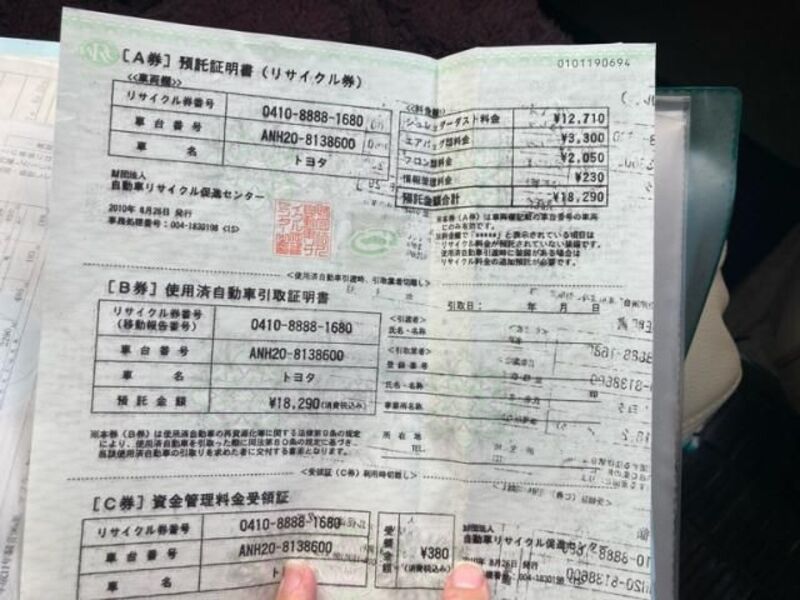 0101190694
[A券] 預託証明書(リサイクル券)
<<車両欄>>
リサイクル券番号 0410-8888-1680
車台番号 ANH20-8138600
車名 トヨタ
<<料金欄>>
シュレッダーダスト料金 ¥12,710
エアバッグ類料金 ¥3,300
フロン類料金 ¥2,050
情報管理料金 ¥230
預託金額合計 ¥18,290
財団法人
自動車リサイクル促進センター
2010年 8月26日 発行
事務処理番号:004-1830198 <15>
※本券(A券)は車両欄記載の車台番号の車両
にのみ有効です。
※料金欄で「*****」と表示されている項目は
リサイクル料金が預託されていない装備です。
使用済自動車引渡時に装備がある場合は
リサイクル料金の追加預託が必要です。
<使用済自動車引渡時、引取業者切離し>
[B券] 使用済自動車引取証明書
引取日: 年 月 日
リサイクル券番号
(移動報告番号) 0410-8888-1680
車台番号 ANH20-8138600
車名 トヨタ
預託金額 ¥18,290(消費税込み)
<引渡者>
氏名・名称
<引取業者>
登録番号
氏名・名称
印
事業所名称
所在地
TEL.
※本券(B券)は使用済自動車の再資源化等に関する法律第9条の規定
により、使用済自動車を引取った際に同法第80条の規定に基づき、
当該使用済自動車の引取りを求めた者に交付する書面となります。
<受領証(C券)利用時切離し>
[C券] 資金管理料金受領証
リサイクル券番号 0410-8888-1680
車台番号 ANH20-8138600
車名
受領金額 ¥380
(消費税込み)
財団法人
自動車リサイクル促進センター
2010年 8月26日 発行
004-1830198 <15>